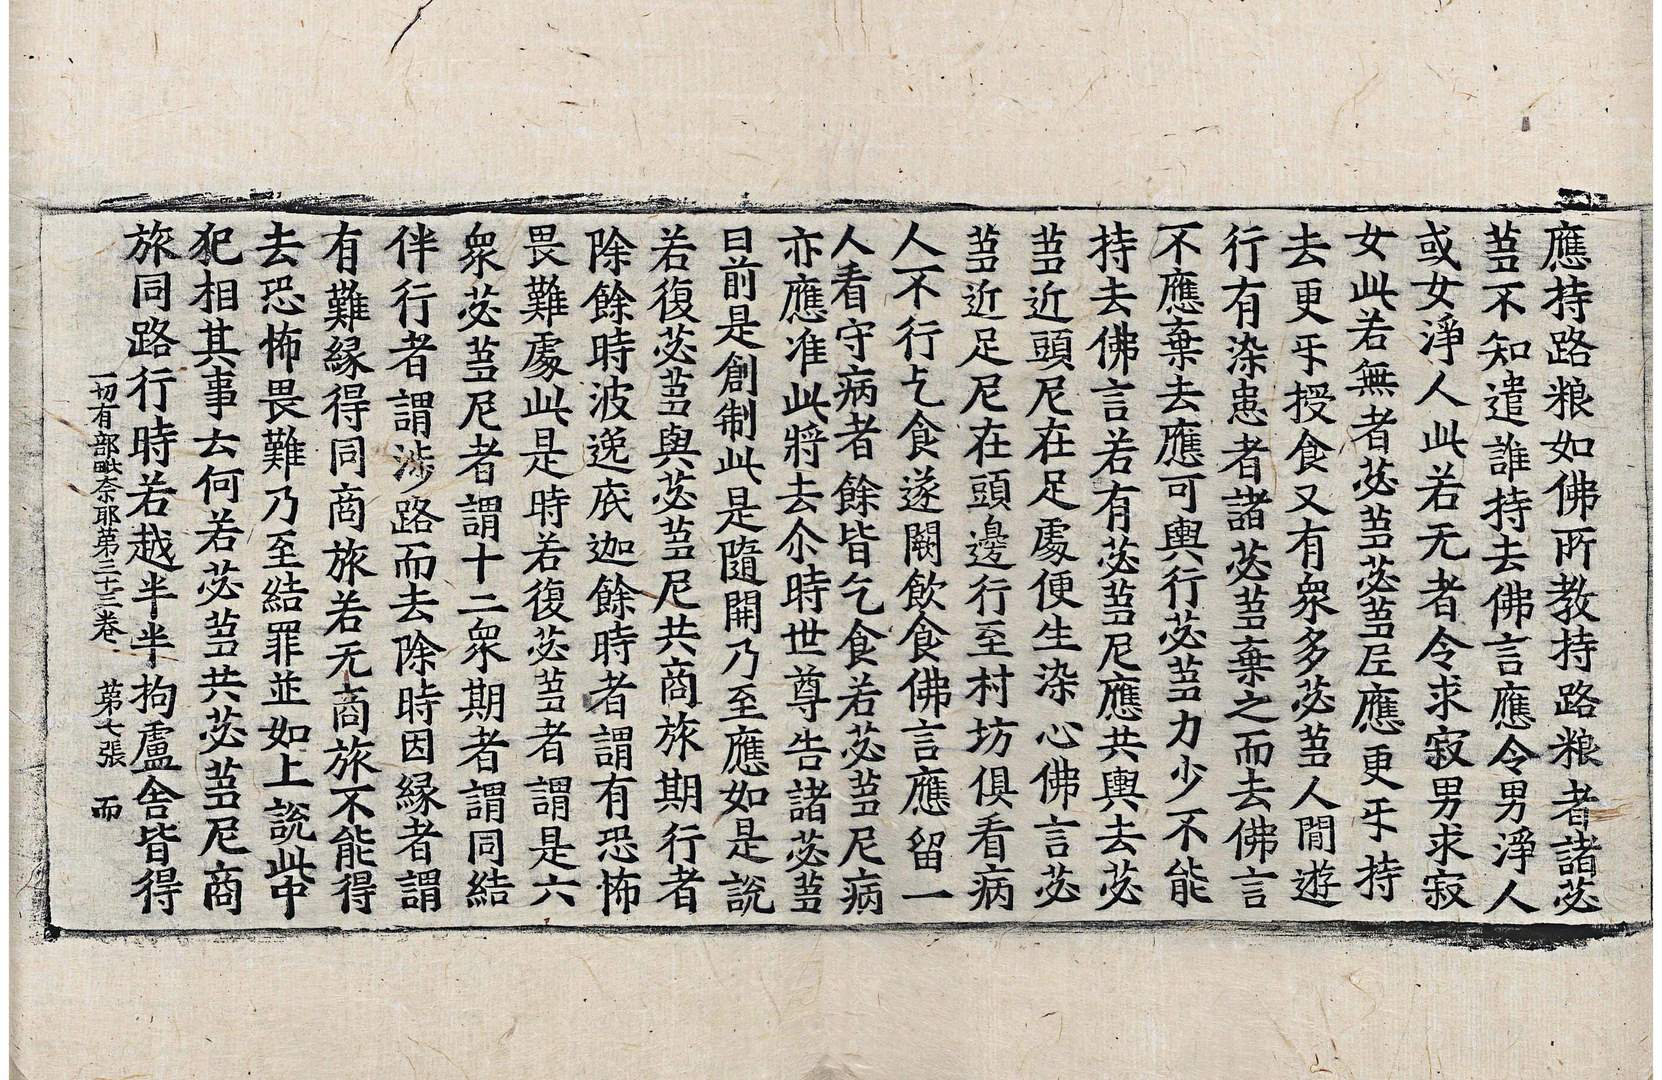 應持路粮如佛所教持路粮者諸苾
䓷不知遣誰持去佛言應令男淨人
或女淨人此若无者令求寂男求寂
女此若無者苾䓷苾䓷尼應更㸦持
去更㸦授食又有衆多苾䓷人閒遊
行有染患者諸苾䓷棄之而去佛言
不應棄去應可輿行苾䓷力少不能
持去佛言若有苾䓷尼應共輿去苾
䓷近頭尼在足處便生染心佛言苾
䓷近足尼在頭邊行至村坊俱看病
人不行乞食遂闕飲食佛言應留一
人看守病者餘皆乞食若苾䓷尼病
亦應准此將去尒時世尊告諸苾䓷
曰前是創制此是隨開乃至應如是說
若復苾䓷與苾䓷尼共商旅期行者
除餘時波逸底迦餘時者謂有恐怖
畏難處此是時若復苾䓷者謂是六
衆苾䓷尼者謂十二衆期者謂同結
伴行者謂涉路而去除時因緣者謂
有難緣得同商旅若无商旅不能得
去恐怖畏難乃至結罪並如上說此中
犯相其事云何若苾䓷共苾䓷尼商
旅同路行時若越半半拘盧舍皆得
一切有部毗奈耶第三十三卷　第七張　而